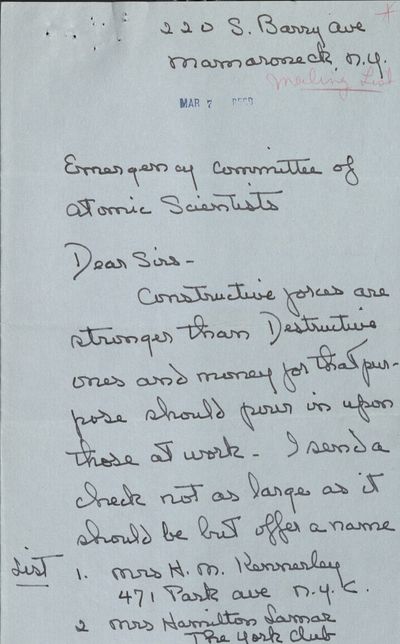 220 S. Barry Ave
Mamaroneck. N.Y.
Mailing List
MAR 7 REC'D
Emergency Committee of
Atomic Scientists
Dear Sirs-
Constructive forces are
stronger than Destructive
ones and money for that pur-
pose should pour in upon
those at work - I send a
check not as large as it
should be but offer a name
List 1. Mrs H. M. Kennerley
471 Park Ave N.Y.C.
2 Mrs Hamilton Lamar
The York Club